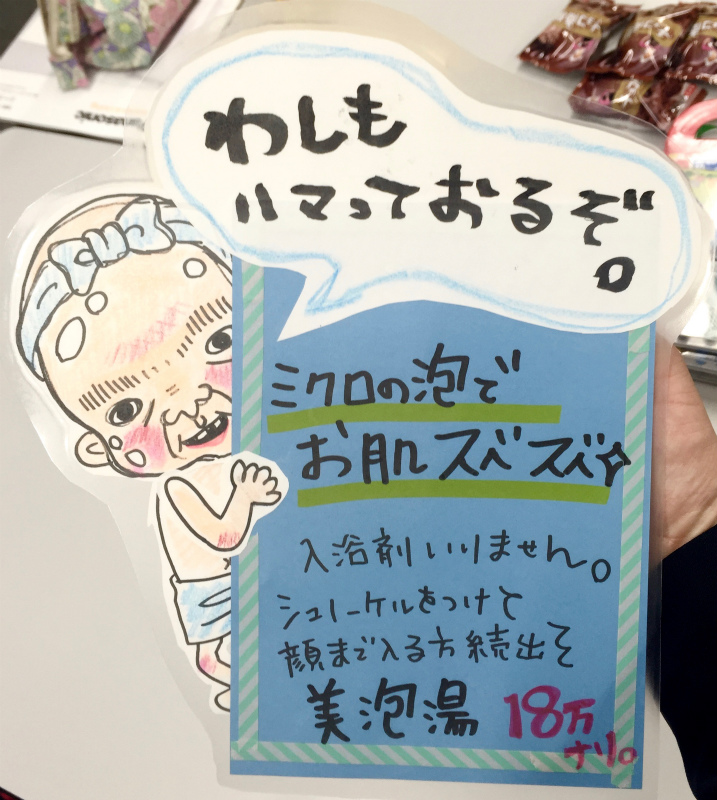 わしも
ハマっておるぞ。
ミクロの泡で
お肌スベスベ☆
入浴剤いりません。
シュノーケルをつけて
顔まで入る方続出そ
美泡湯 18万
ナリ。